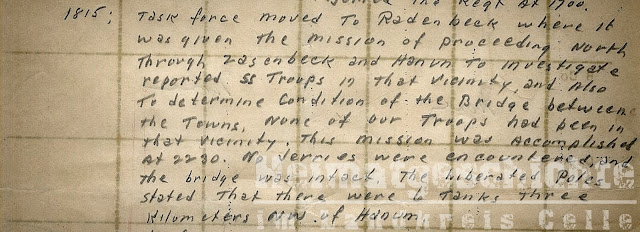 joined the Regt at 1700.
1815; Task force moved to Radenbeck where it
was given the mission of proceeding north
through Zasenbeck and Hanum to investigate
reported SS Troops in that vicinity, and Also
To determine Condition of the Bridge between
the Towns. None of our Troops had been in
that vicinity. This mission was accomplished
At 2230. No Jerries were encountered, and
the bridge was intact. The liberated Poles
stated That there were 6 Tanks Three
Kilometers NW of Hanum
im Landkreis Celle